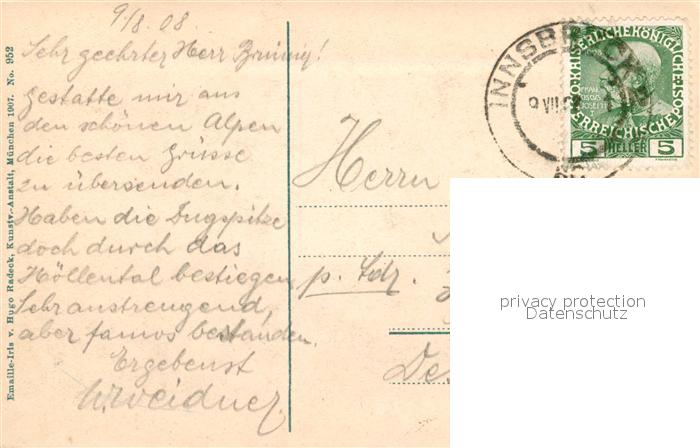 9/8. 08
Sehr geehrter Herr Brünig!
Gestatte mir aus
den schönen Alpen
die besten Grüsse
zu übersenden.
Haben die Zugspitze
doch durch das
Höllental bestiegen
Sehr anstrengend,
aber famos bestanden.
Ergebenst
W. Weidner.
Herrn
p. Adr.
De
Emaille-Iris v. Hugo Radeck, Kunstv.-Anstalt, München 1907. No. 952
INNSBRUCK
9 VII
KAISERLICHE KÖNIGLICHE
ÖSTERREICHISCHE POST
5 HELLER 5
privacy protection
Datenschutz